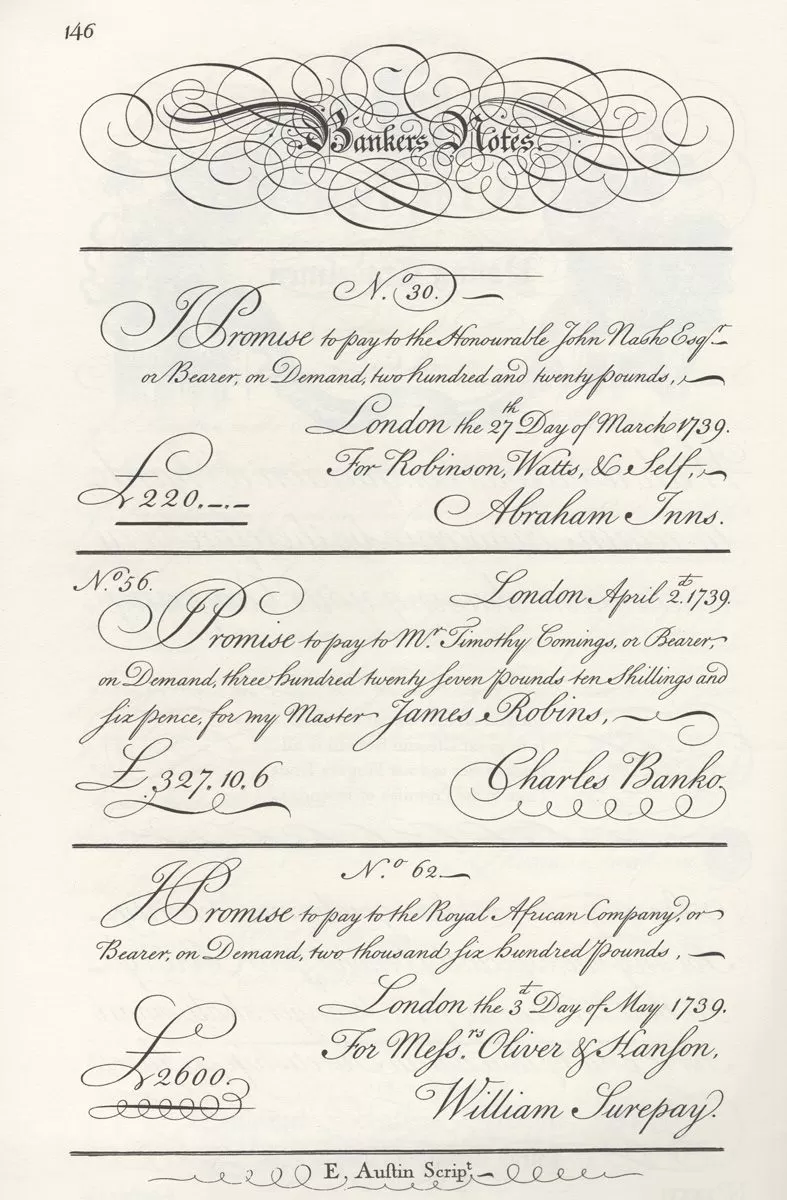 146
Bankers Notes.
N.º 30.
I Promise to pay to the Honourable John Nash Esqʳ
or Bearer, on Demand, two hundred and twenty pounds,
London the 27ᵗʰ Day of March 1739.
For Robinson, Watts, & Self,
£220.-.-
Abraham Inns.
N.º 56.
London April 2.ᵈ 1739.
I Promise to pay to Mʳ. Timothy Comings, or Bearer,
on Demand, three hundred twenty ſeven pounds ten Shillings and
ſix pence, for my Master James Robins,
£.327.10.6
Charles Banko.
N.º 62.
I Promise to pay to the Royal African Company, or
Bearer, on Demand, two thousand ſix hundred Pounds,
London the 3ᵈ Day of May 1739.
For Meſs.ʳˢ Oliver & Hanſon,
£2600.
William Surepay.
E, Auſtin Scripᵗ.